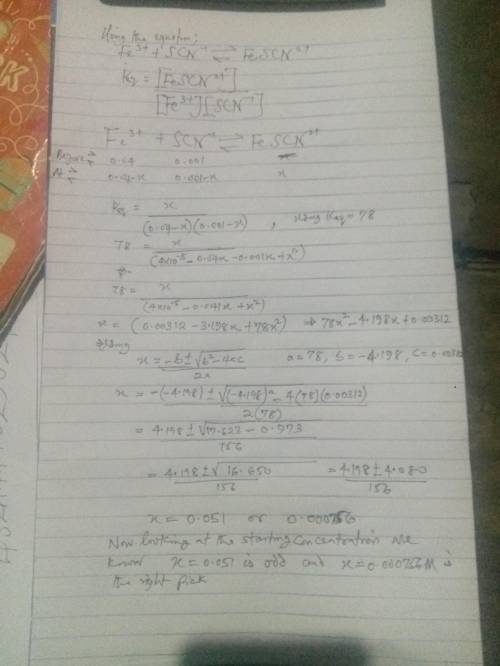 Using the equation:
Fe³⁺ + SCN⁻ ⇌ FeSCN²⁺
Keq = [FeSCN²⁺]
[Fe³⁺][SCN⁻]
Fe³⁺ + SCN⁻ ⇌ FeSCN²⁺
0.04 0.001
0.04-x 0.001-x x
Keq = x
(0.04-x)(0.001-x) , using Keq = 78
78 = x
(4x10⁻⁵ - 0.04x - 0.001x + x²)
78 = x
(4x10⁻⁵ - 0.041x + x²)
x = (0.00312 - 3.198x + 78x²) ⇒ 78x² - 4.198x + 0.00312
Using
x = -b ± √b² - 4ac a = 78, b = -4.198, c = 0.00312
2a
x = -(-4.198) ± √(-4.198)² - 4(78)(0.00312)
2(78)
= 4.198 ± √17.623 - 0.973
156
= 4.198 ± √16.650 = 4.198 ± 4.080
156 156
x = 0.051 or 0.000756
Now looking at the starting concentration we
know x = 0.051 is odd and x = 0.000756M is
the right pick